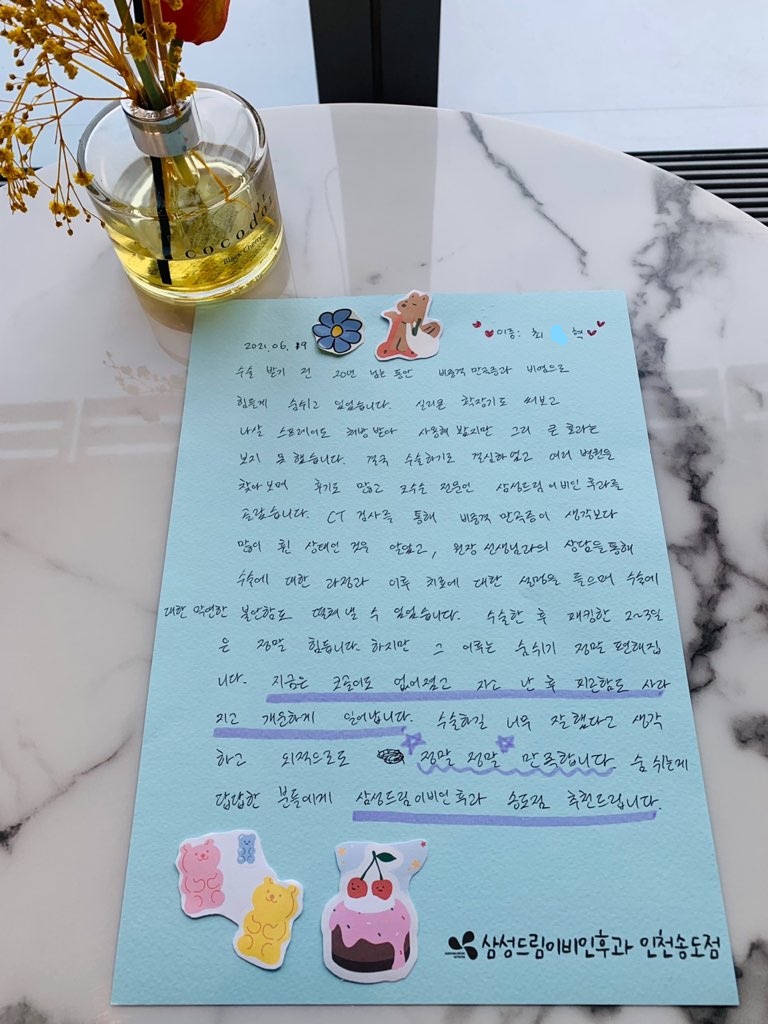 cocodor
Black Cherry
2021.06.19
이름: 최 혁
수술 받기 전 20년 넘는 동안 비중격 만곡증과 비염으로
힘들게 숨쉬고 있었습니다. 실리콘 확장기도 써보고
나살 스프레이도 처방 받아 사용해 봤지만 그리 큰 효과는
보지 못 했습니다. 결국 수술하기로 결심하였고 여러 병원을
찾아보며 후기도 많고 코수술 전문인 삼성드림이비인후과를
골랐습니다. CT 검사를 통해 비중격 만곡증이 생각보다
많이 휜 상태인 것을 알았고, 원장 선생님과의 상담을 통해
수술에 대한 과정과 이후 치료에 대한 설명을 들으며 수술에
대한 막연한 불안함도 떨쳐낼 수 있었습니다. 수술한 후 패킹한 2~3일
은 정말 힘듭니다. 하지만 그 이후는 숨쉬기 정말 편해집
니다. 지금은 코골이도 없어졌고 자고 난 후 피곤함도 사라
지고 개운하게 일어납니다. 수술하길 너무 잘했다고 생각
하고 외적으로도 정말 정말 만족합니다. 숨 쉬는게
답답한 분들에게 삼성드림이비인후과 송도점 추천드립니다.
삼성드림이비인후과 인천송도점